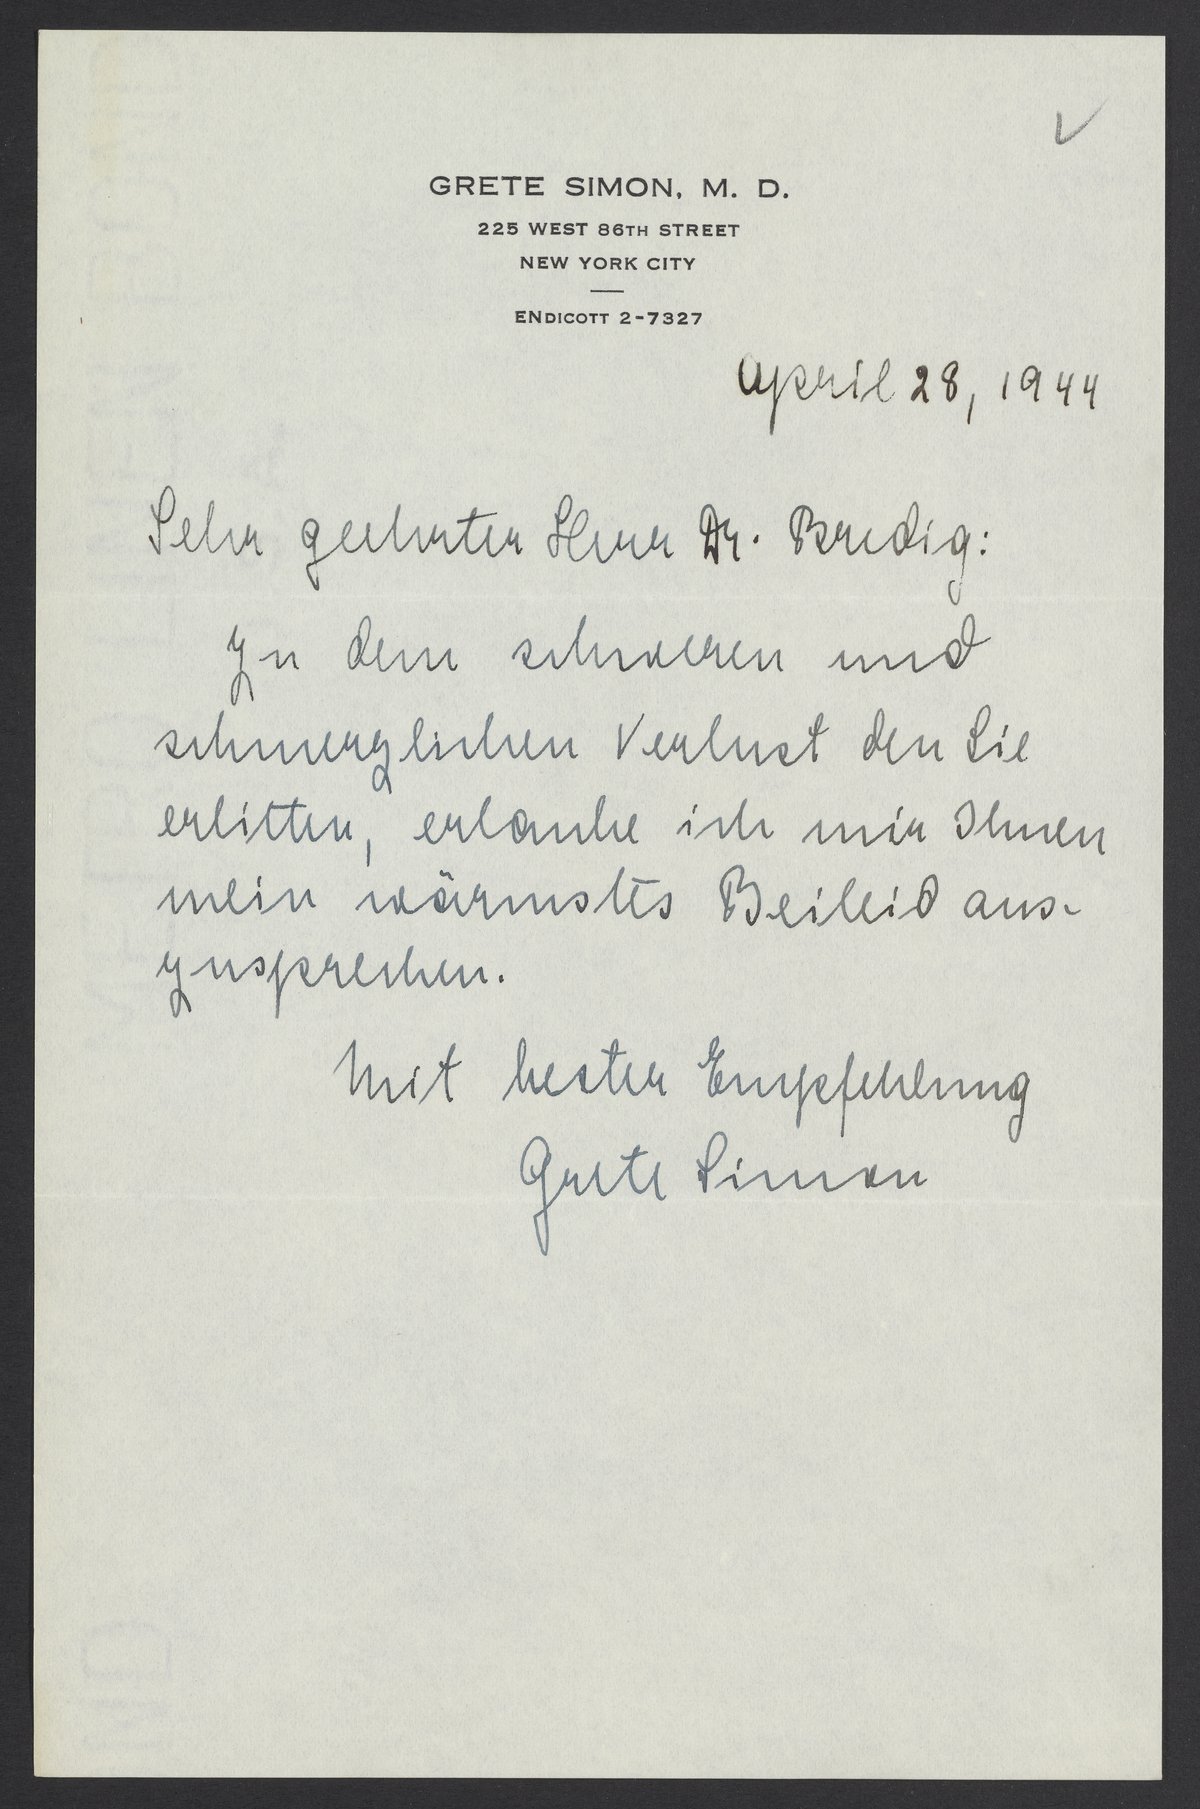 GRETE SIMON, M. D.
225 WEST 86TH STREET
NEW YORK CITY
ENDICOTT 2-7327
April 28, 1944
Sehr geehrter Herr Dr. Bredig:
Zu dem schweren und
schmerzlichen Verlust den Sie
erlitten, erlaube ich mir Ihnen
mein wärmstes Beileid aus-
zusprechen.
Mit bester Empfehlung
Grete Simon